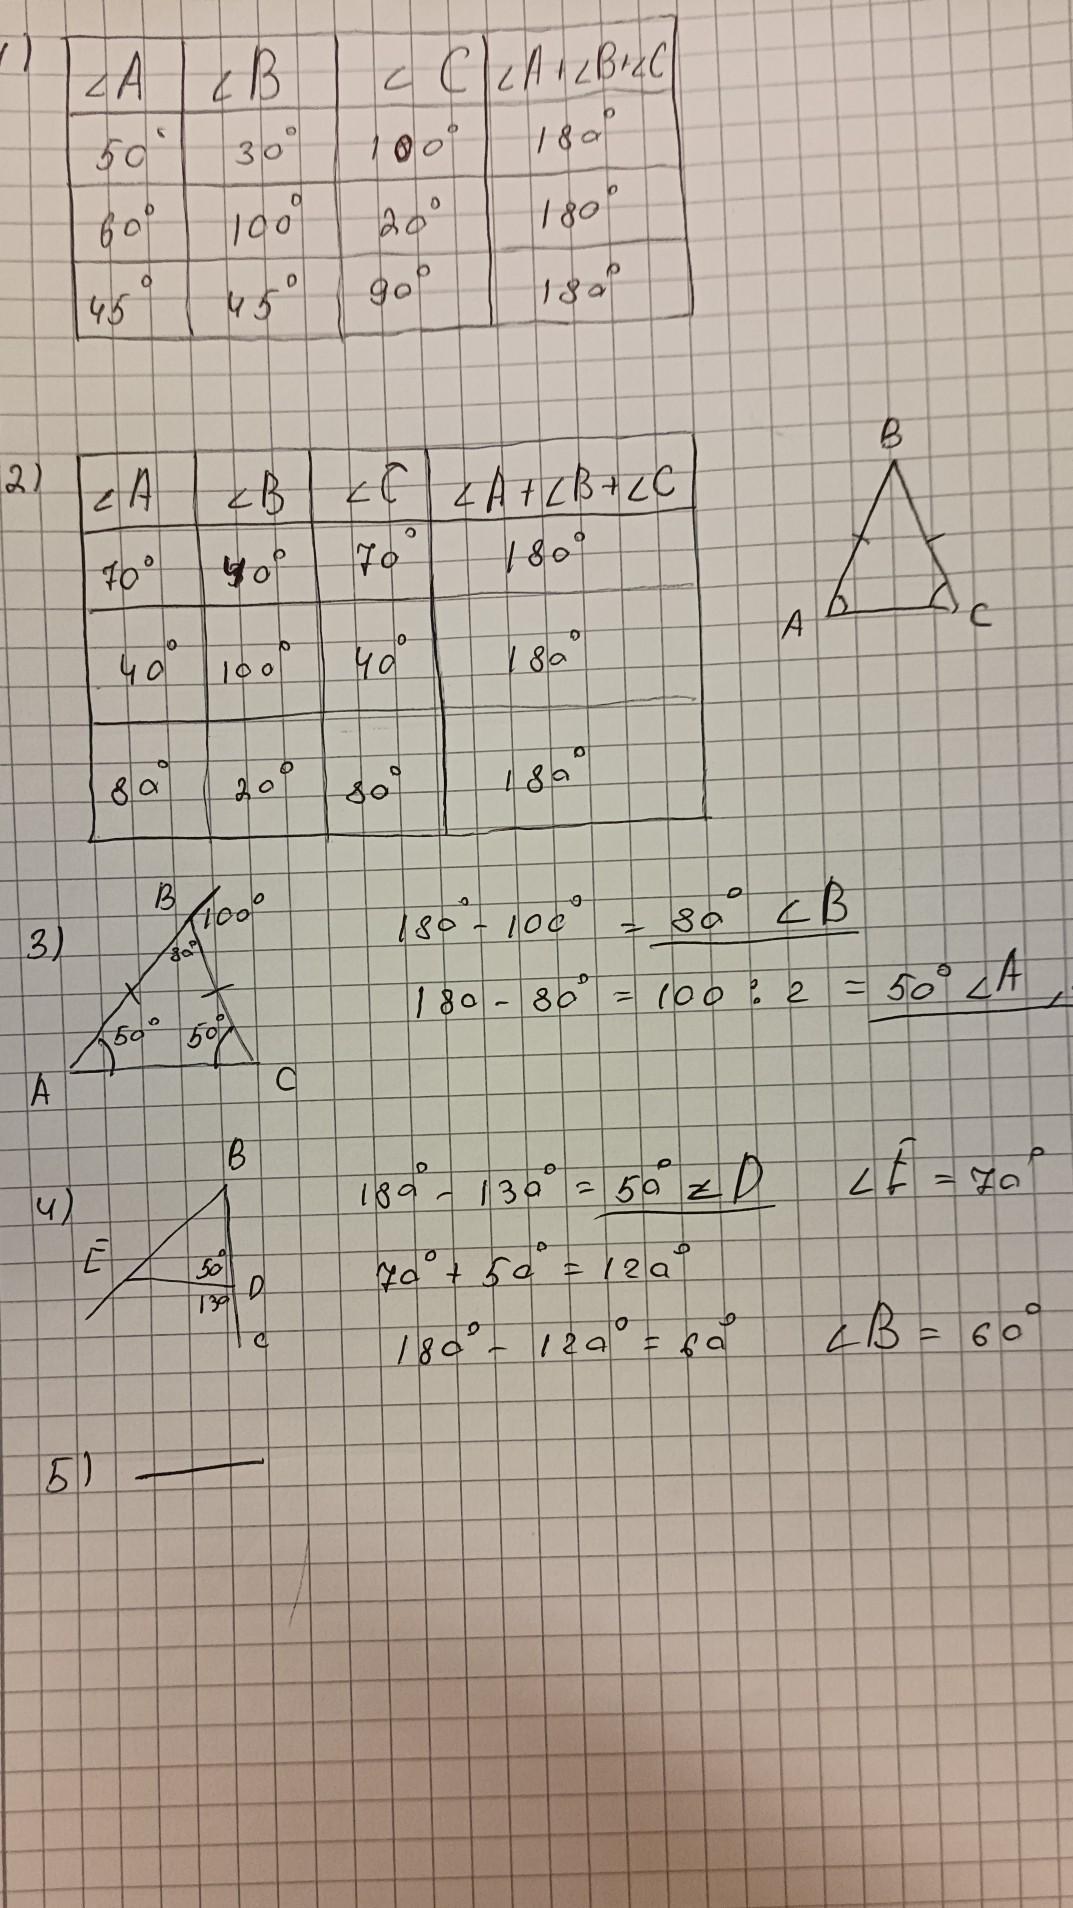 1)
∠A ∠B ∠C ∠A+∠B+∠C
50° 30° 100° 180°
60° 100° 20° 180°
45° 45° 90° 180°
2)
∠A ∠B ∠C ∠A+∠B+∠C
70° 40° 70° 180°
40° 100° 40° 180°
80° 20° 80° 180°
B
A C
3)
B 100°
80°
50° 50°
A C
180° - 100° = 80° ∠B
180 - 80° = 100 : 2 = 50° ∠A,
4)
B
E
50°
D
130
C
180° - 130° = 50° ∠D ∠E = 70°
70° + 50° = 120°
180° - 120° = 60° ∠B = 60°
5) —